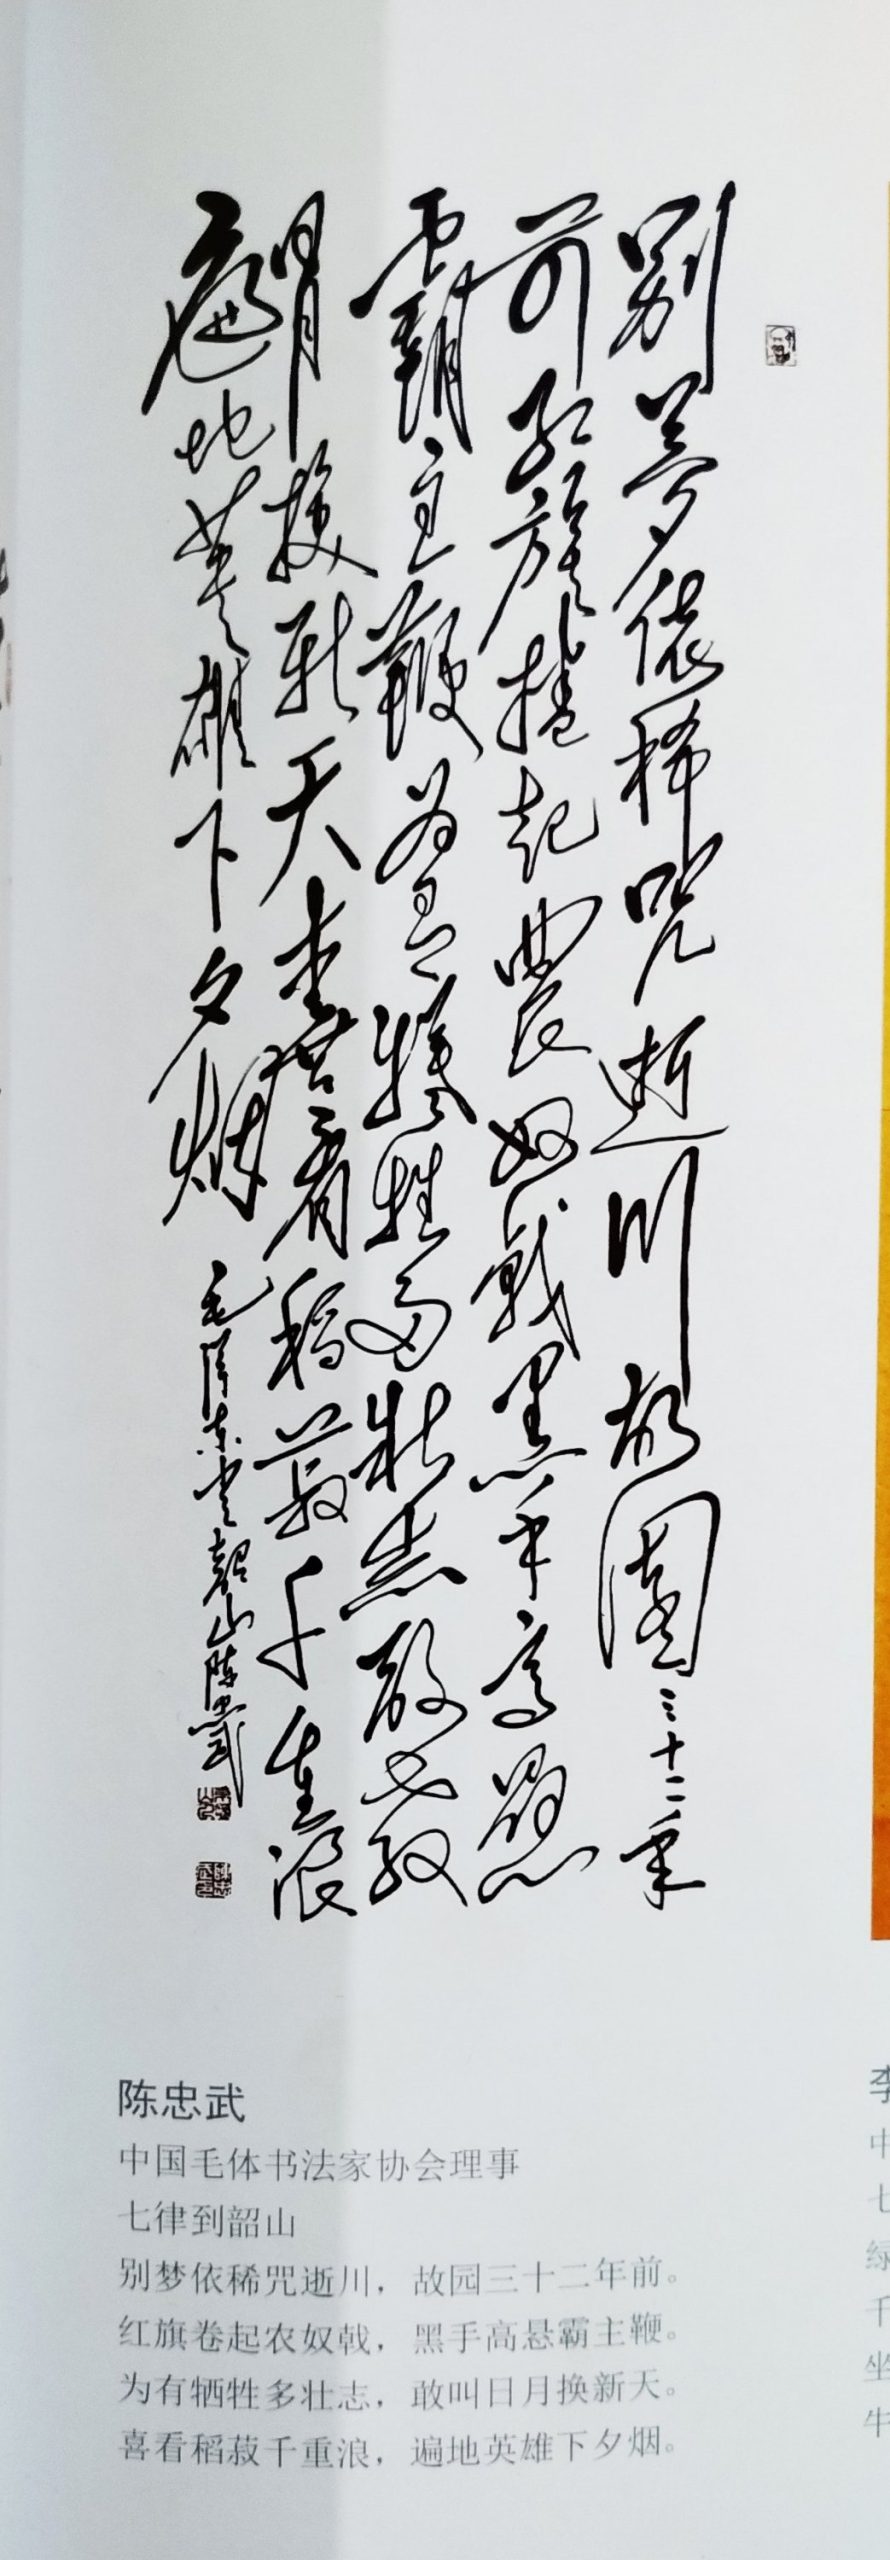 别夢依稀咒逝川故園三十二年
前红旗捲起農奴戟黑手高懸
霸主鞭为有犧牲多壮志敢教
日月换新天喜看稻菽千重浪
遍地英雄下夕烟
毛泽东韶山陈忠武
陈忠武
中国毛体书法家协会理事
七律到韶山
别梦依稀咒逝川，故园三十二年前。
红旗卷起农奴戟，黑手高悬霸主鞭。
为有牺牲多壮志，敢叫日月换新天。
喜看稻菽千重浪，遍地英雄下夕烟。